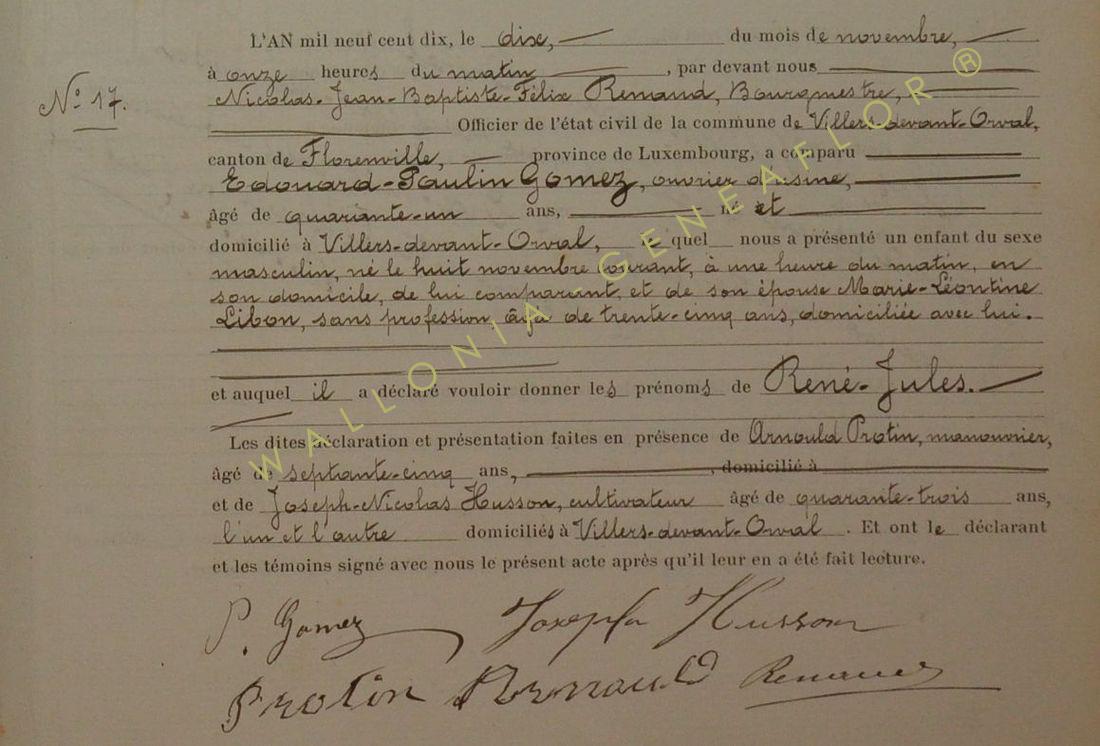 L'AN mil neuf cent dix, le dix, du mois de novembre,
à onze heures du matin, par devant nous
Nº 17.
Nicolas-Jean-Baptiste-Félix Renaud, Bourgmestre,
Officier de l'état civil de la commune de Villers-devant-Orval,
canton de Florenville, province de Luxembourg, a comparu
Edouard-Paulin Gomez, ouvrier d'usine,
âgé de quarante-un ans, né et
domicilié à Villers-devant-Orval, le quel nous a présenté un enfant du sexe
masculin, né le huit novembre courant, à une heure du matin, en
son domicile, de lui comparant, et de son épouse Marie-Léontine
Libon, sans profession, âgée de trente-cinq ans, domiciliée avec lui.
et auquel il a déclaré vouloir donner les prénoms de René-Jules.
Les dites déclaration et présentation faites en présence de Arnould Protin, manouvrier,
âgé de septante-cinq ans, domicilié à
et de Joseph-Nicolas Husson, cultivateur âgé de quarante-trois ans,
l'un et l'autre domiciliés à Villers-devant-Orval. Et ont le déclarant
et les témoins signé avec nous le présent acte après qu'il leur en a été fait lecture.
P. Gomez Joseph Husson
Protin Arnould Renaud
WALLONIA-GENEAFLOR ®